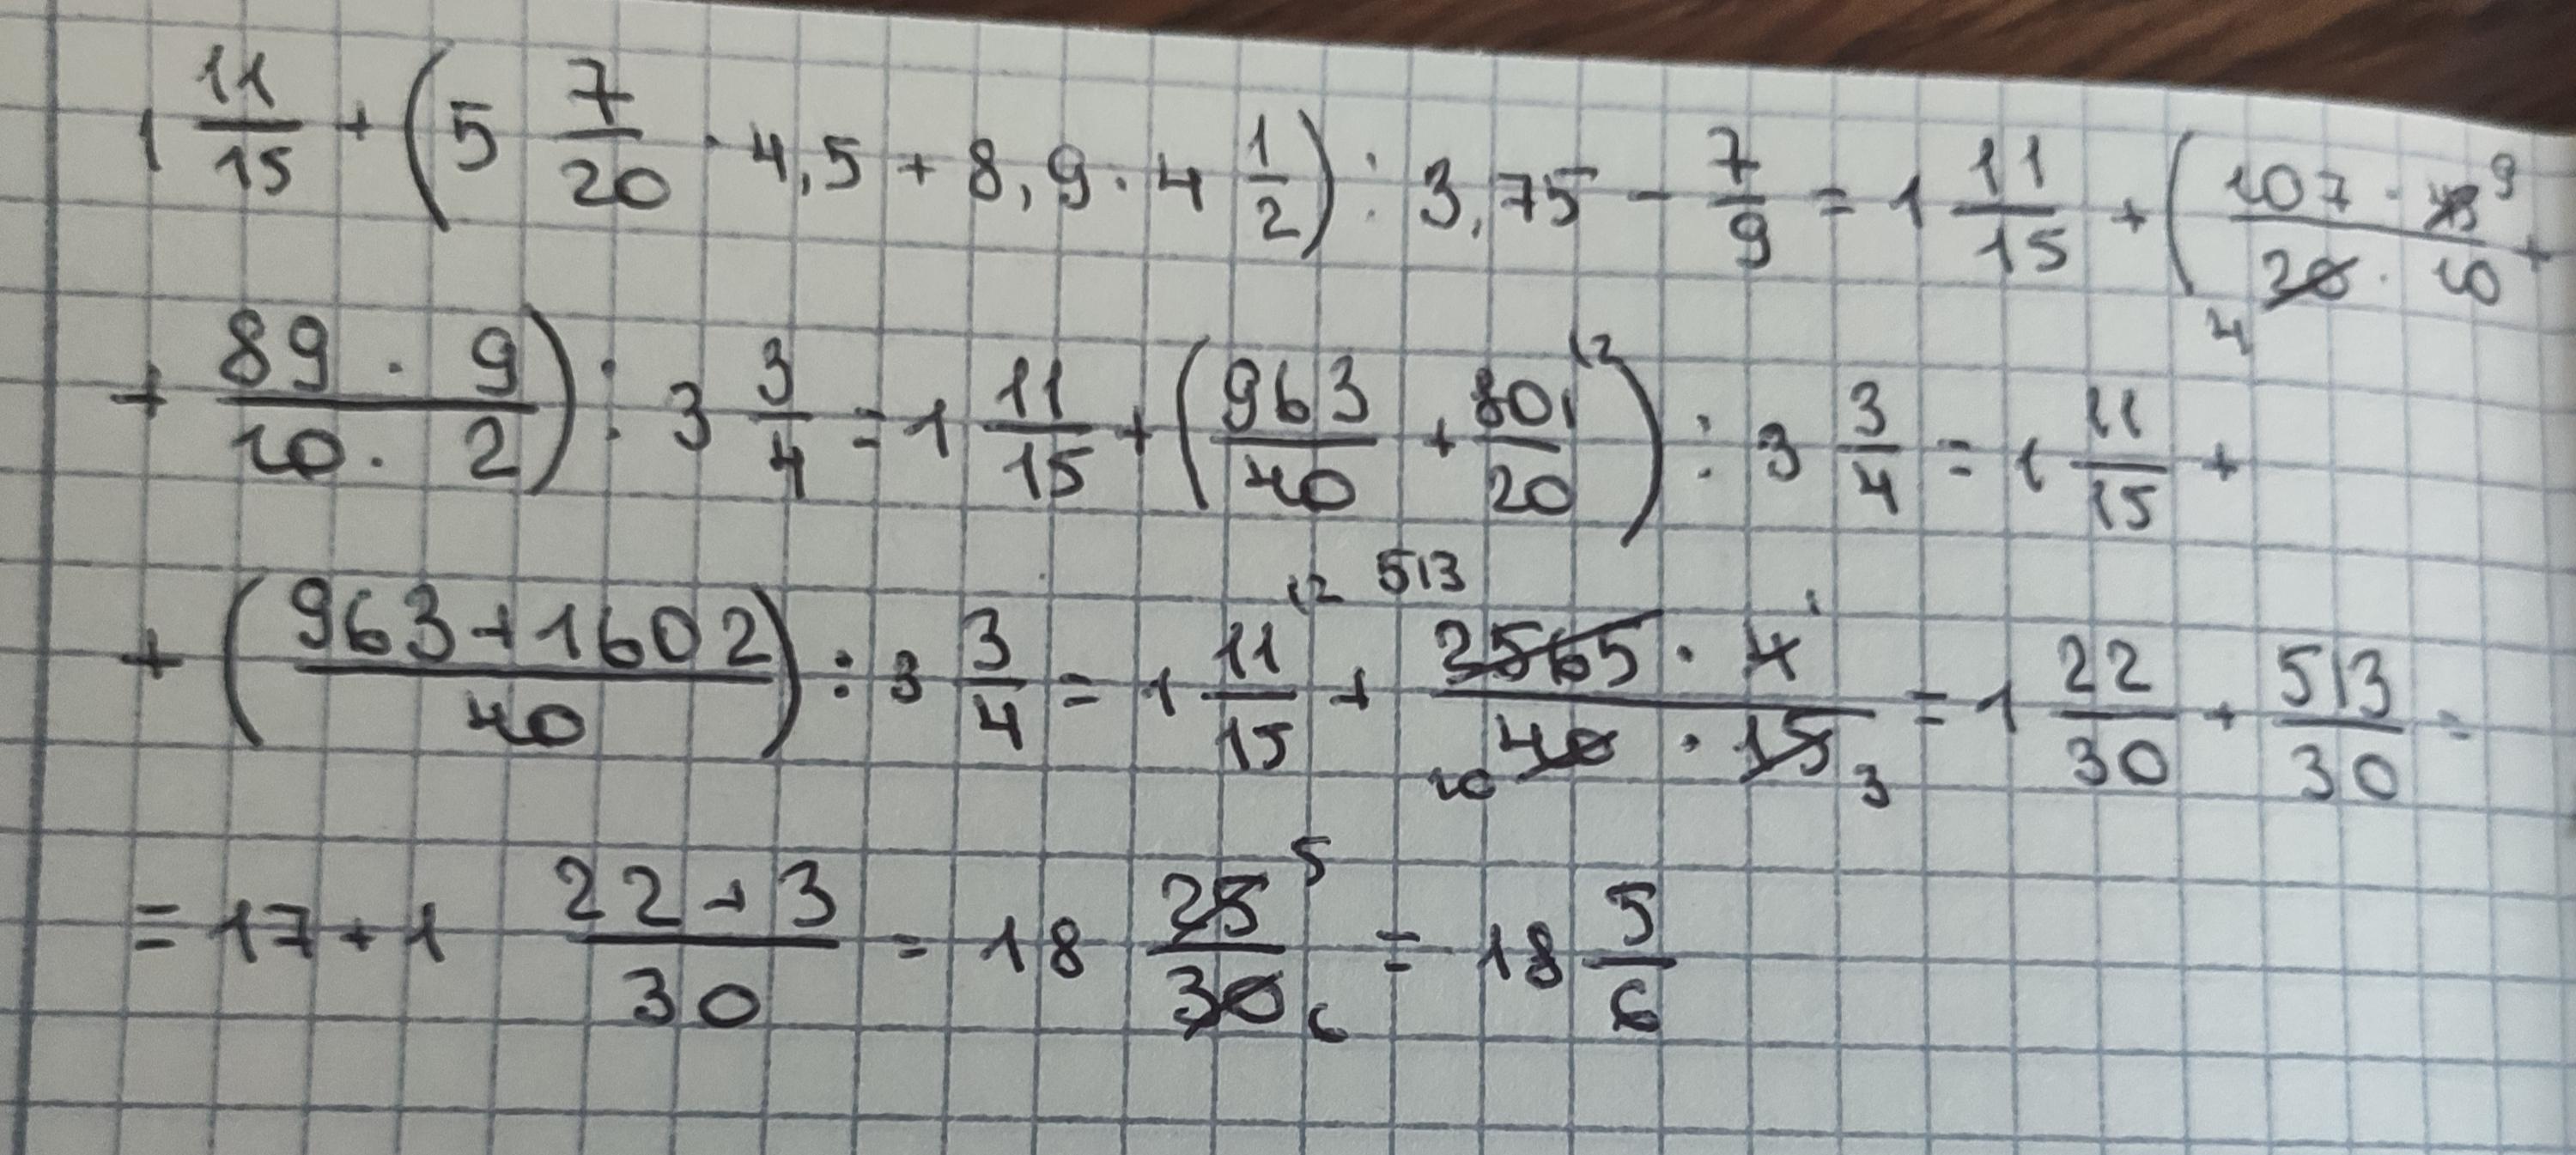 1 11/15 + (5 7/20 · 4,5 + 8,9 · 4 1/2) : 3,75 - 7/9 = 1 11/15 + (107 · 45 9/20 · 10 4 +
+ 89 · 9/10 · 2) : 3 3/4 = 1 11/15 + (963/40 + 801/20 12) : 3 3/4 = 1 11/15 +
+ (963+1602/40) : 3 3/4 = 1 11/15 12 + 513 2565 · 4 1/10 40 · 15 3 = 1 22/30 + 513/30 =
= 17 + 1 22+3/30 = 18 25 5/30 6 = 18 5/6